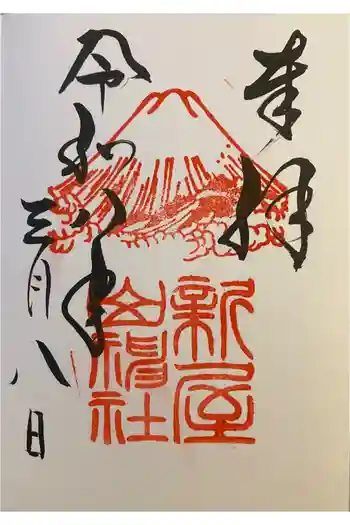 奉拝
新屋
山神社
令和八年
三月八日